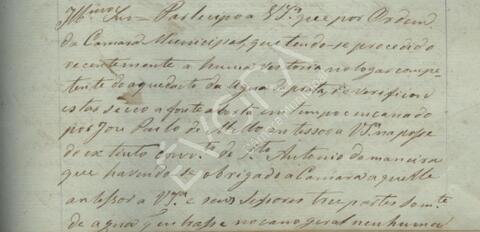 Illmo Snr = Participo a V Sa. que por Ordem
da Camara Municipal, que tendo-se procedido
recentemente a huma vestoria no logar compe-
tente do aqueducto da Agua de prata, se verificou
estar secco a fonte aberta em tempo encanado
por José Paulo de Mello antessor a V Sa. na posse
do extinto convto. de Sto. Antonio da maneira
que havendo-se obrigado a Camara a quelle
antessor a V Sa. e seus sessores tres partes somte.
de agua q entrasse no cano geral nenhuma